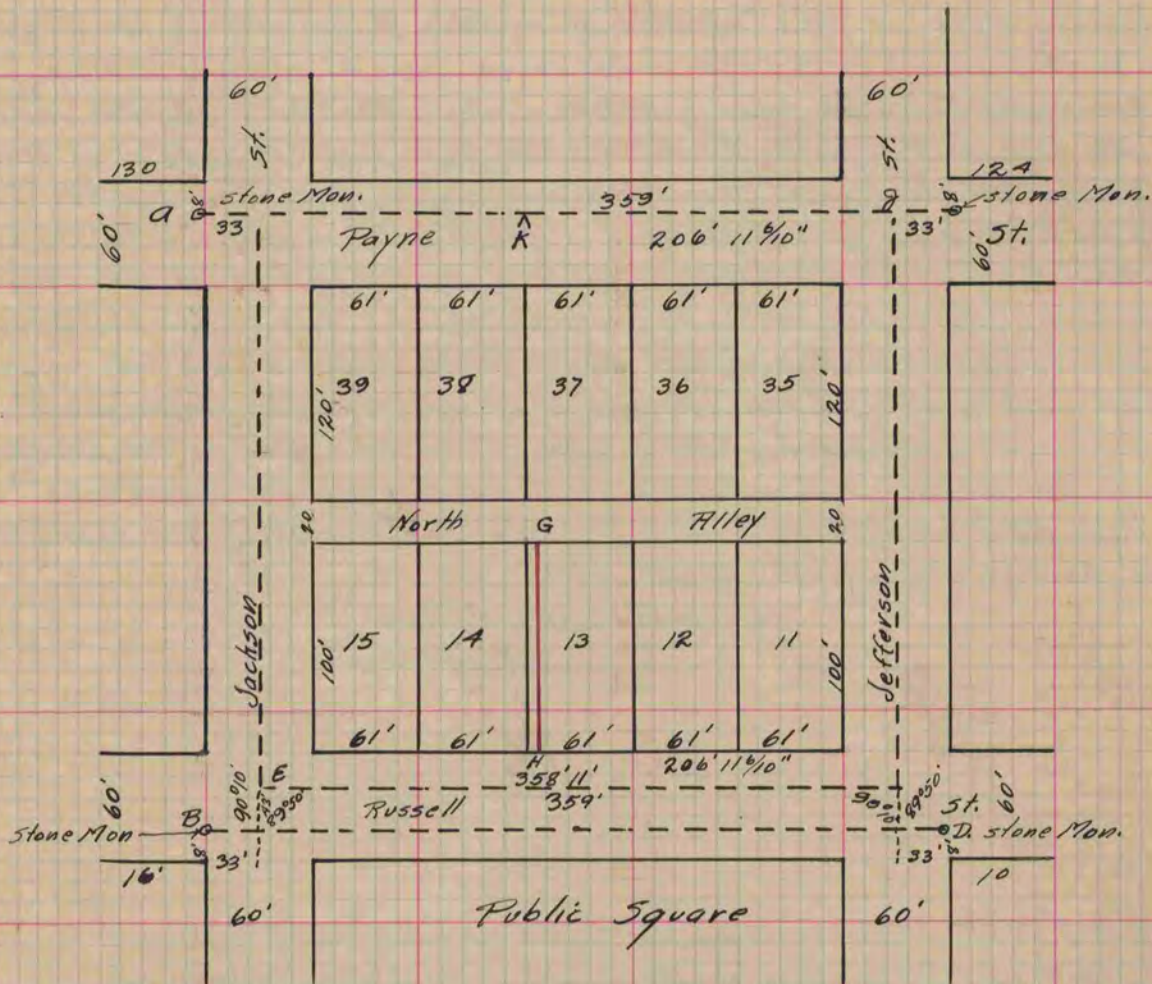 60'
60'
St.
St.
130
124
8'
stone Mon.
359'
8'
stone Mon.
a
33
K
33'
60'
Payne
206' 11 6/10"
60'
St.
61' 61' 61' 61' 61'
39 38 37 36 35
120'
120'
20
North G Alley
20
Jackson
Jefferson
15 14 13 12 11
100'
100'
61' 61' 61' 61' 61'
H
206' 11 6/10"
E
358' 11'
60'
90°10'
89°50'
Russell
359'
90°10'
89°50'
St.
60'
Stone Mon
B
D. stone Mon.
8'
33'
33'
8'
16'
10
60'
Public Square
60'